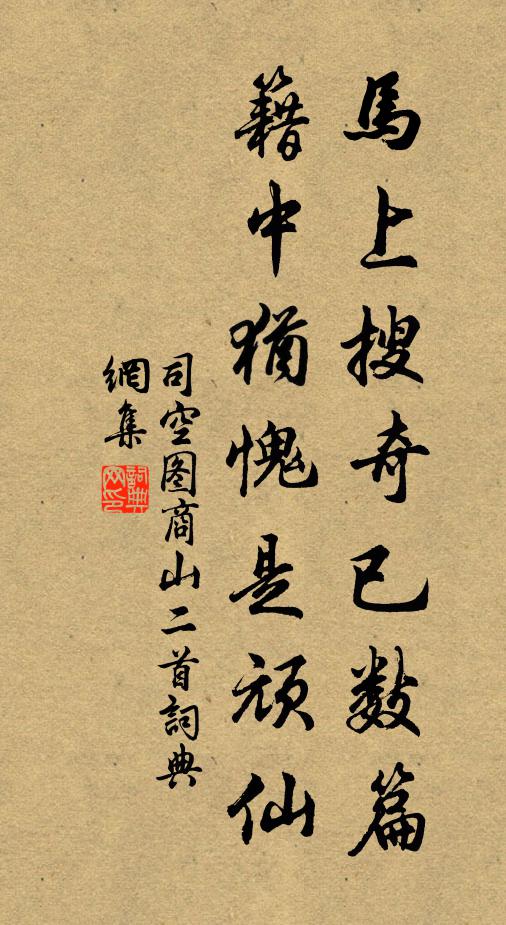 馬上搜奇已数篇
籍中猶愧是頑仙
司空图商山二首詞典
網集
詞典
网印